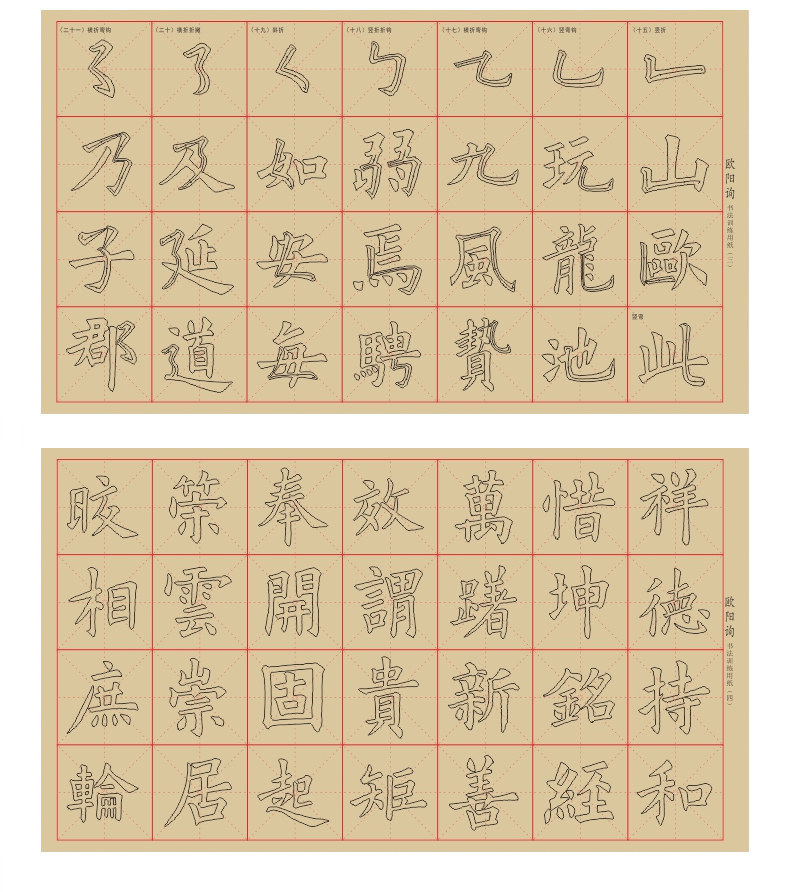 欧阳询 书法训练用纸（三）
（十五）竖折
山歐
竖弯
此
（十六）竖弯钩
玩龍池
（十七）横折弯钩
九風贄
（十八）竖折折钩
弱焉騁
（十九）斜折
如安每
（二十）横折折撇
及延道
（二十一）横折弯钩
乃子郡
欧阳询 书法训练用纸（四）
祥德持和
惜坤銘經
萬躇新善
效謂貴矩
奉開固起
策雲崇居
晈相庶輪